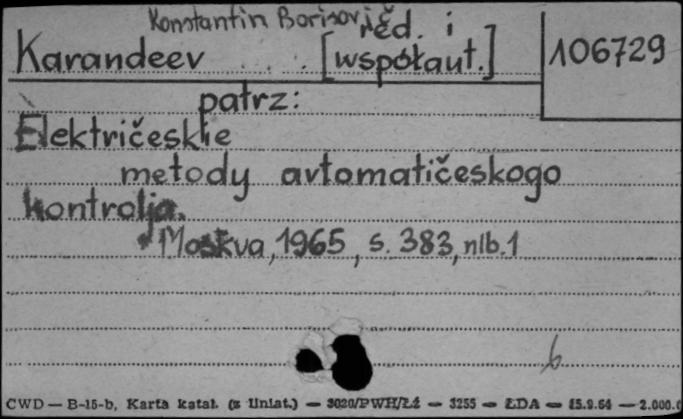 Konstantin Borisovič
Karandeev [red. i współaut.] 106729
patrz:
Èlektričeskie
metody avtomatičeskogo
kontrolja.
Moskva, 1965, s. 383, nlb. 1
6
CWD — B-15-b, Karta katal. (z Uniat.) — 3020/PWH/Łź — 3255 — ŁDA — 15.9.64 — 2.000.0